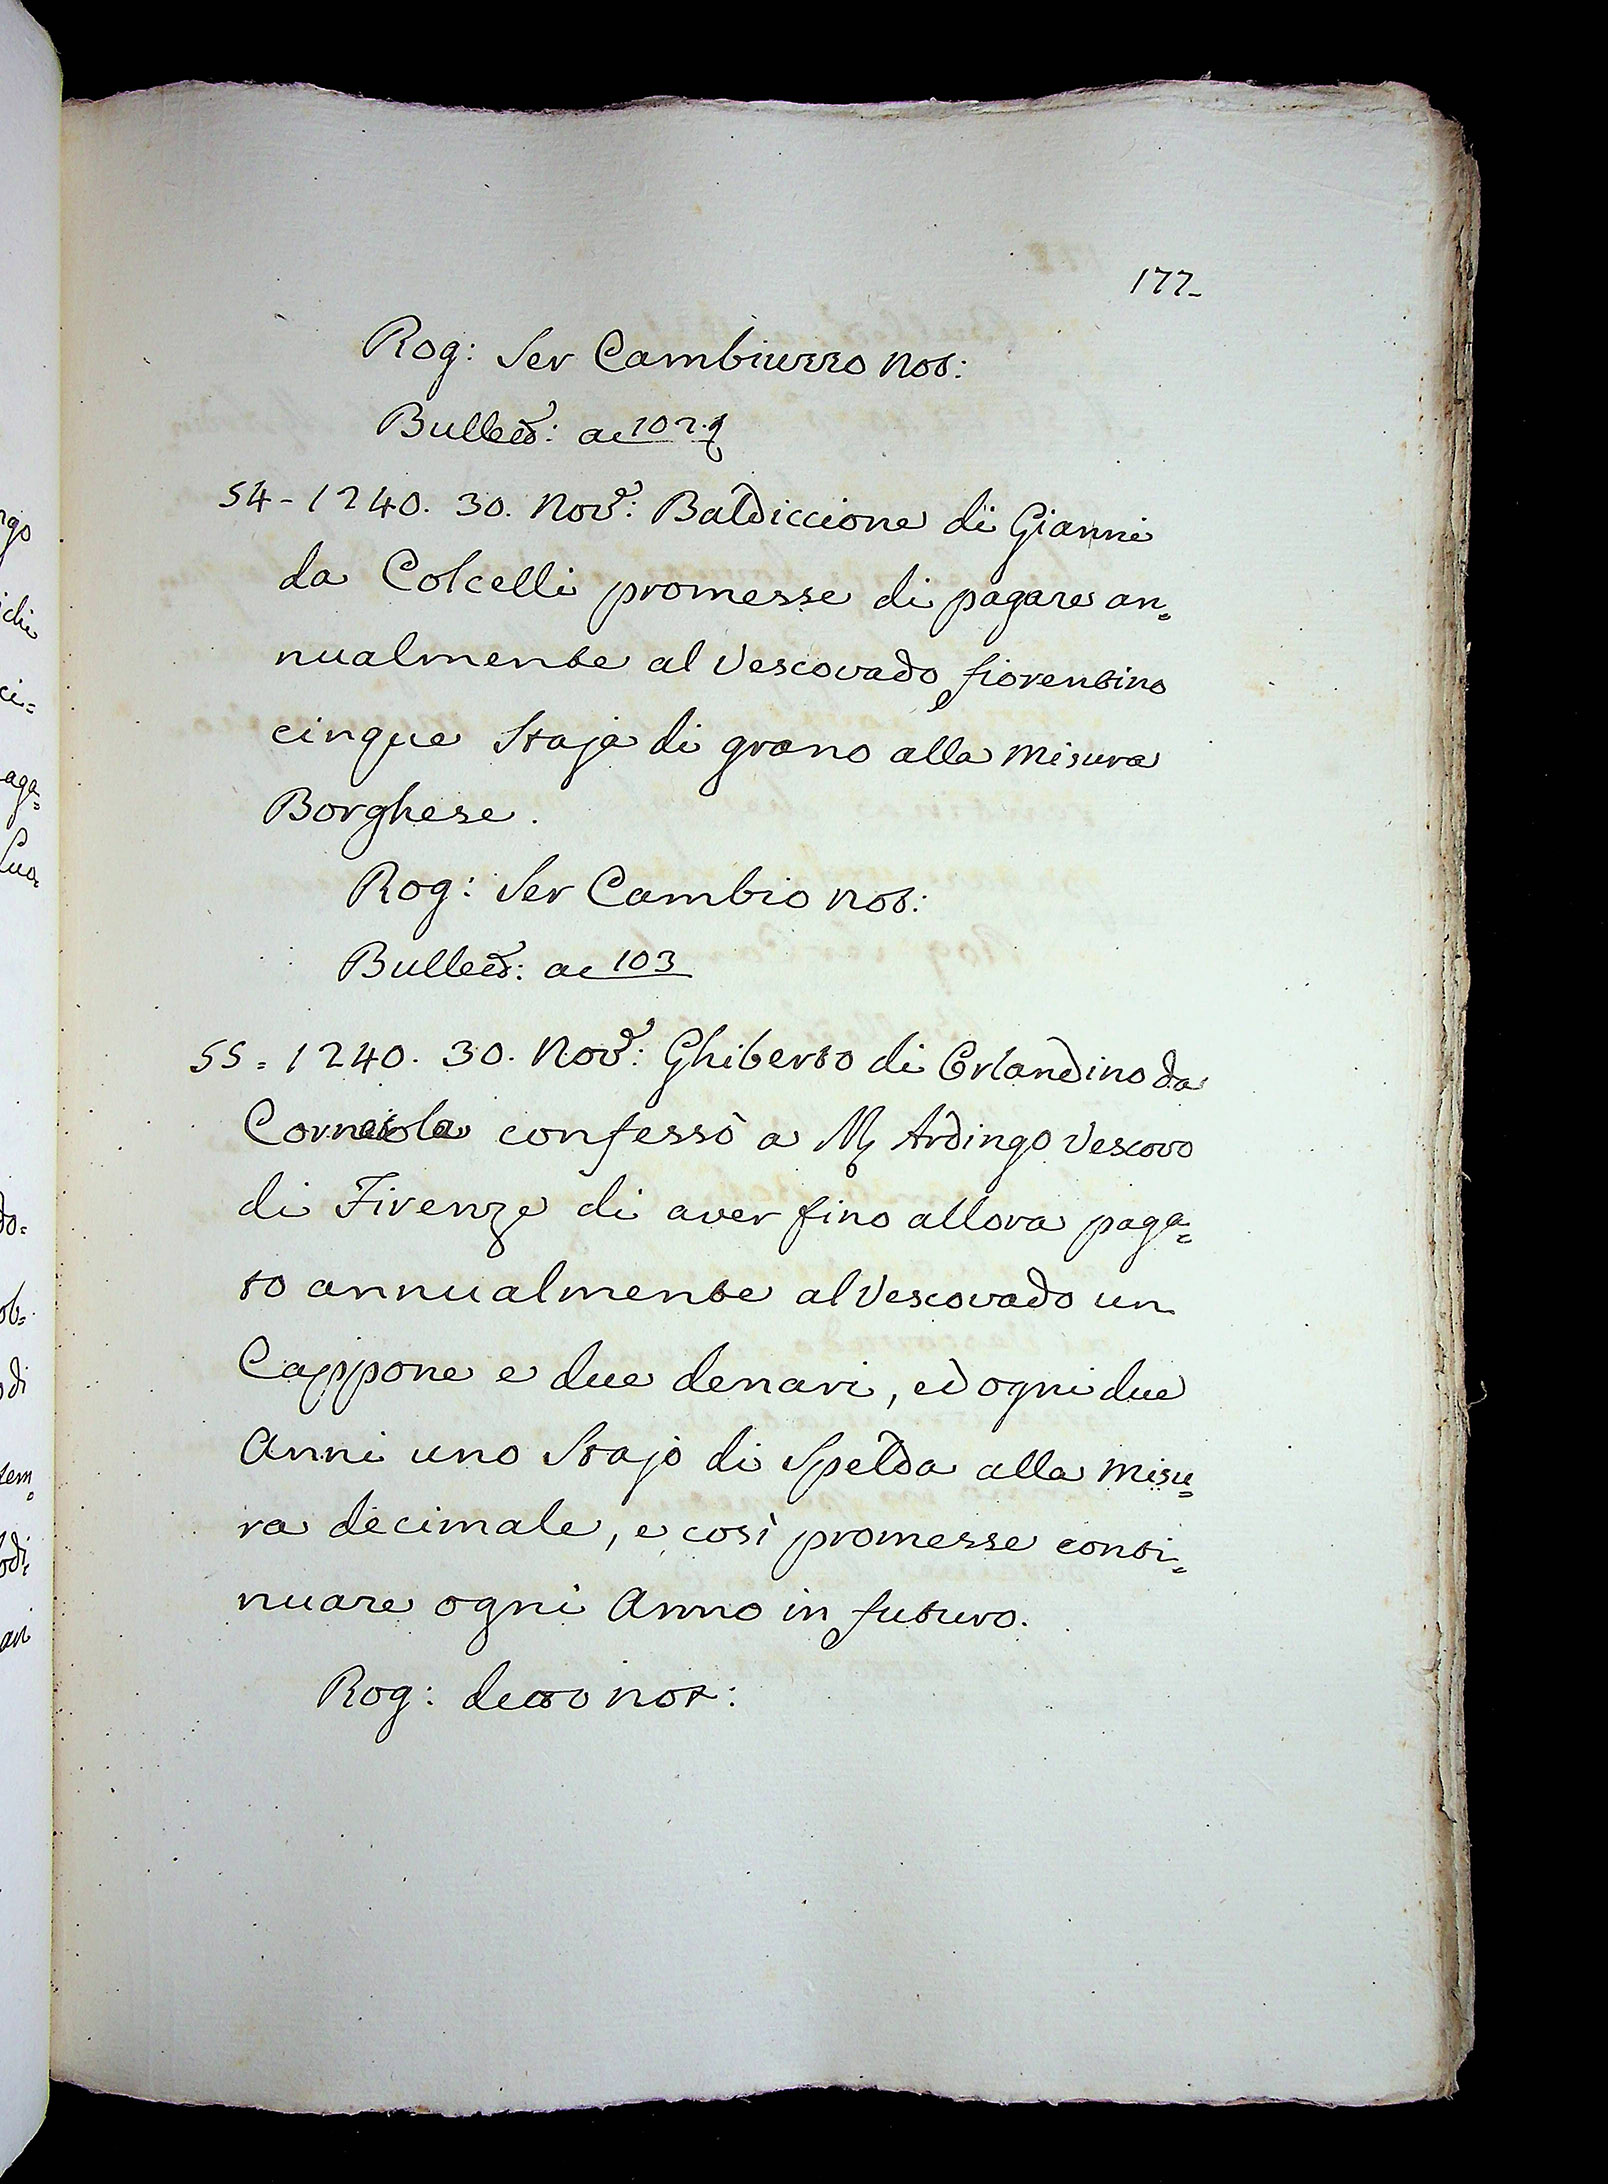 177_
Rog: Ser Cambiuzzo not:
Bullett: ac 102.
54- 1240. 30. Nove: Baldiccione di Gianni
da Colcelli promesse di pagare an=
nualmente al Vescovado fiorentino
cinque Staja di grano alla misura
Borghese.
Rog: Ser Cambio not:
Bullett: ac 103
55= 1240. 30. Nove: Ghiberto di Orlandino da
confessò a M Ardingo Vescovo
di Firenze di aver fino allora paga=
to annualmente al Vescovado un
Cappone e due denari, ed ogni due
Anni uno Stajo di Spelda alla misu=
ra decimale, e così promesse conti=
nuare ogni Anno in futuro.
Rog: detto not: